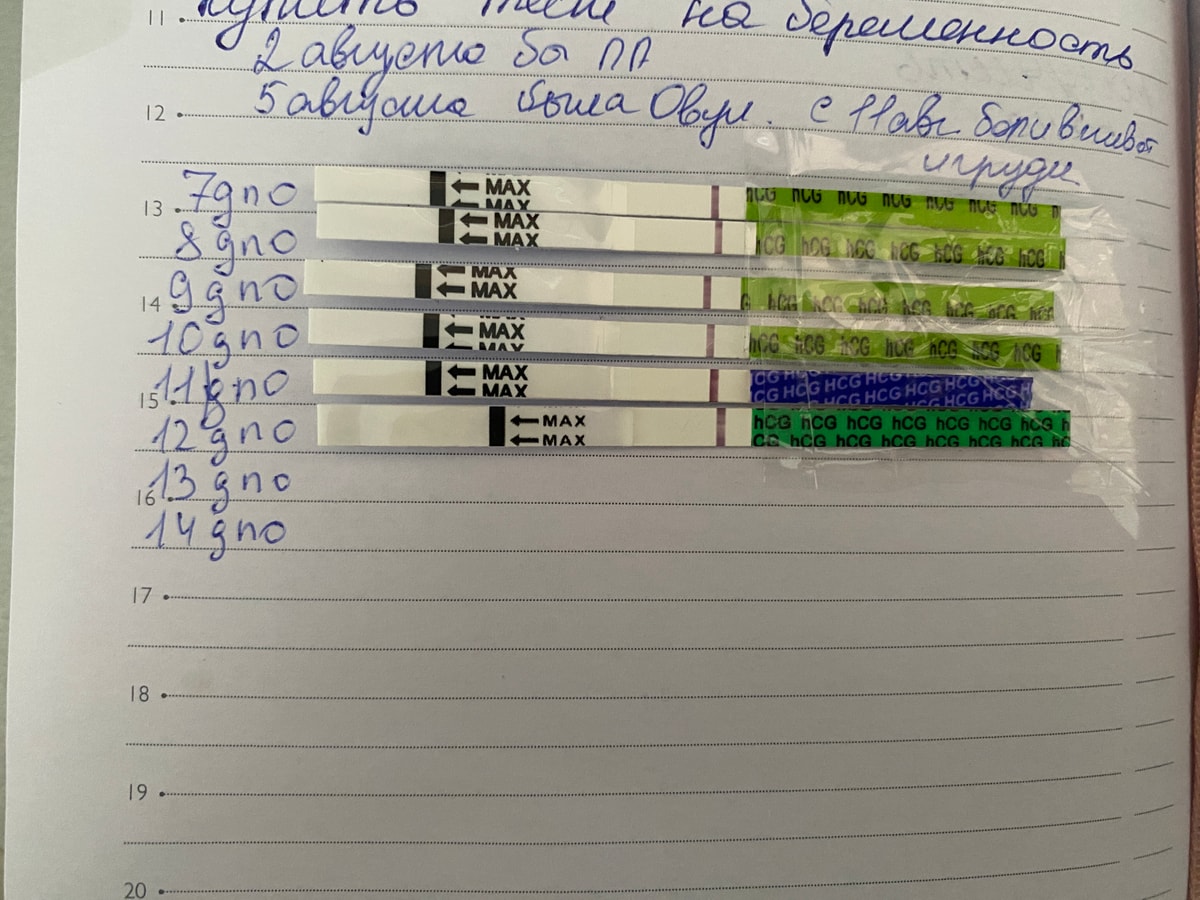 11 купить тест на беременность
2 августа бы ПА
12 5 августа была Овул. с 11 авг болит живот
и груди
7 дпо MAX hCG hCG hCG hCG hCG hCG hCG
MAX
13
8 дпо MAX
MAX hCG hCG hCG hCG hCG hCG hCG
9 дпо MAX
MAX hCG hCG hCG hCG hCG hCG
14
10 дпо MAX hCG hCG hCG hCG hCG hCG hCG
MAX
11 дпо MAX CG HCG HCG HCG HCG HCG HCG
MAX CG HCG HCG HCG HCG HCG HCG
15
12 дпо MAX hCG hCG hCG hCG hCG hCG hCG
MAX CG hCG hCG hCG hCG hCG hCG
13 дпо
16
14 дпо
17
18
19
20